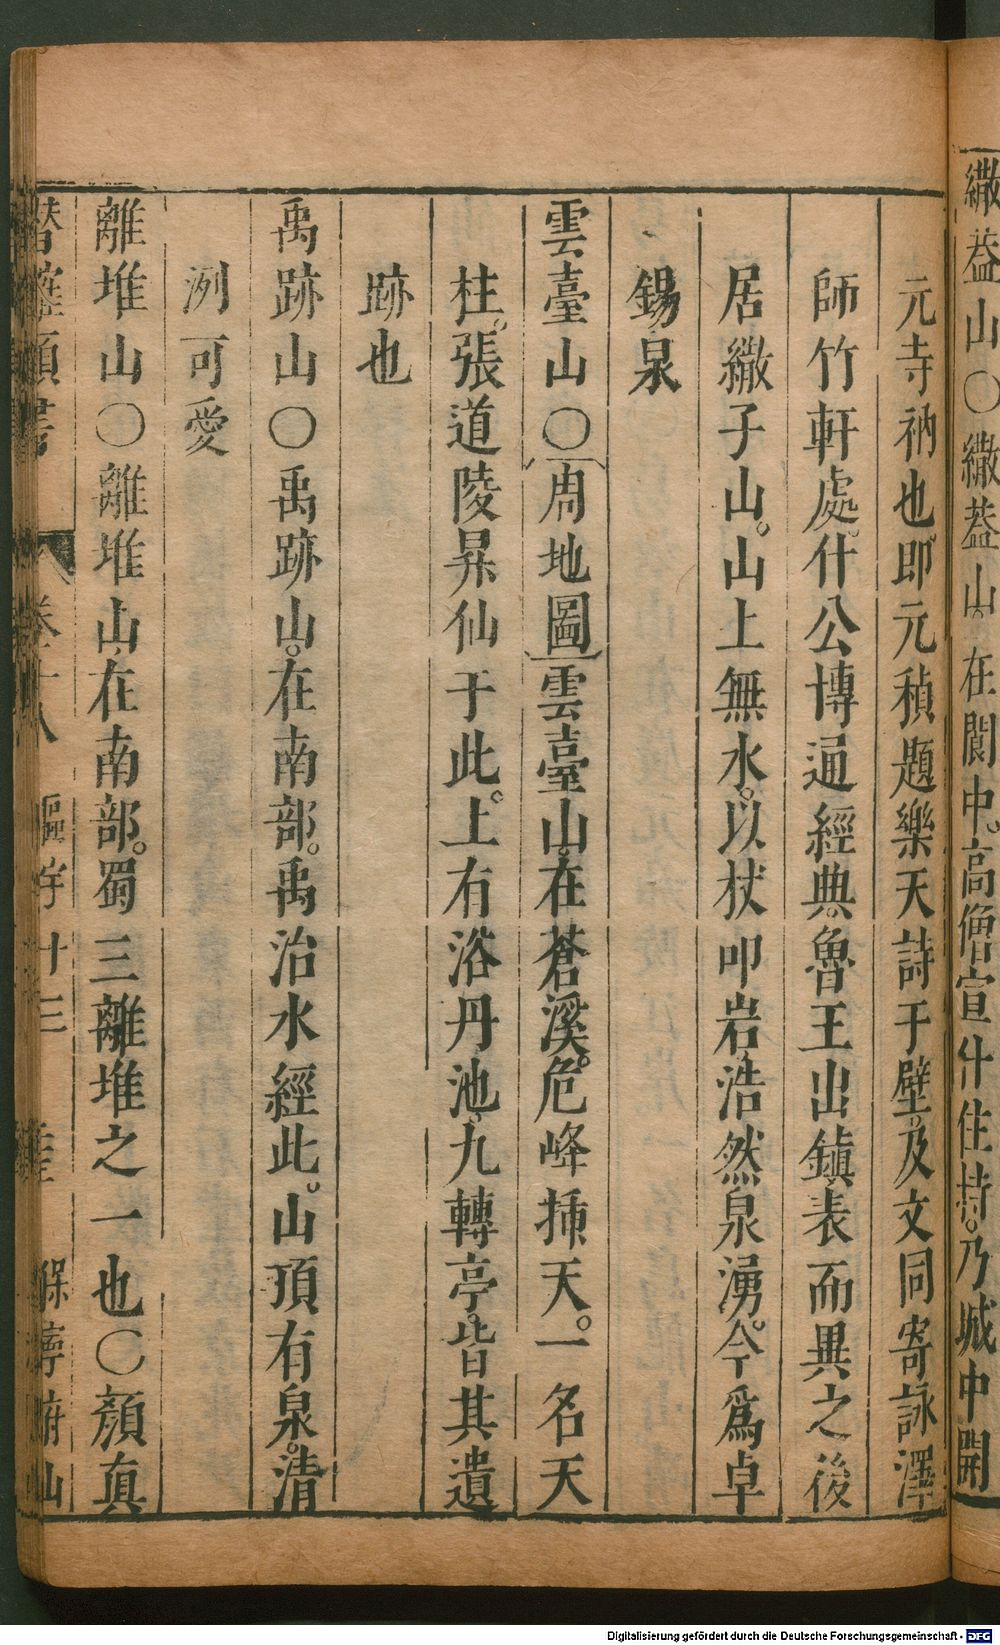 繖葢山〇繖葢山在閬中高僧宣什住持乃城中開
元寺衲也即元稹題樂天詩于壁及文同寄詠澤
師竹軒處什公博通經典魯王出鎮表而異之後
居繖子山。山上無水。以杖叩岩浩然泉湧。今爲卓
錫泉
雲臺山〇周地圖雲臺山在蒼溪。危峰揷天。一名天
柱。張道陵昇仙于此。上有浴丹池九轉亭。皆其遺
跡也
禹跡山〇禹跡山。在南部。禹治水經此。山頂有泉。清
洌可愛
離堆山〇離堆山在南部。蜀三離堆之一也〇顏真
卷十八 謳字十三 保寧府山
Digitalisierung gefördert durch die Deutsche Forschungsgemeinschaft - DFG